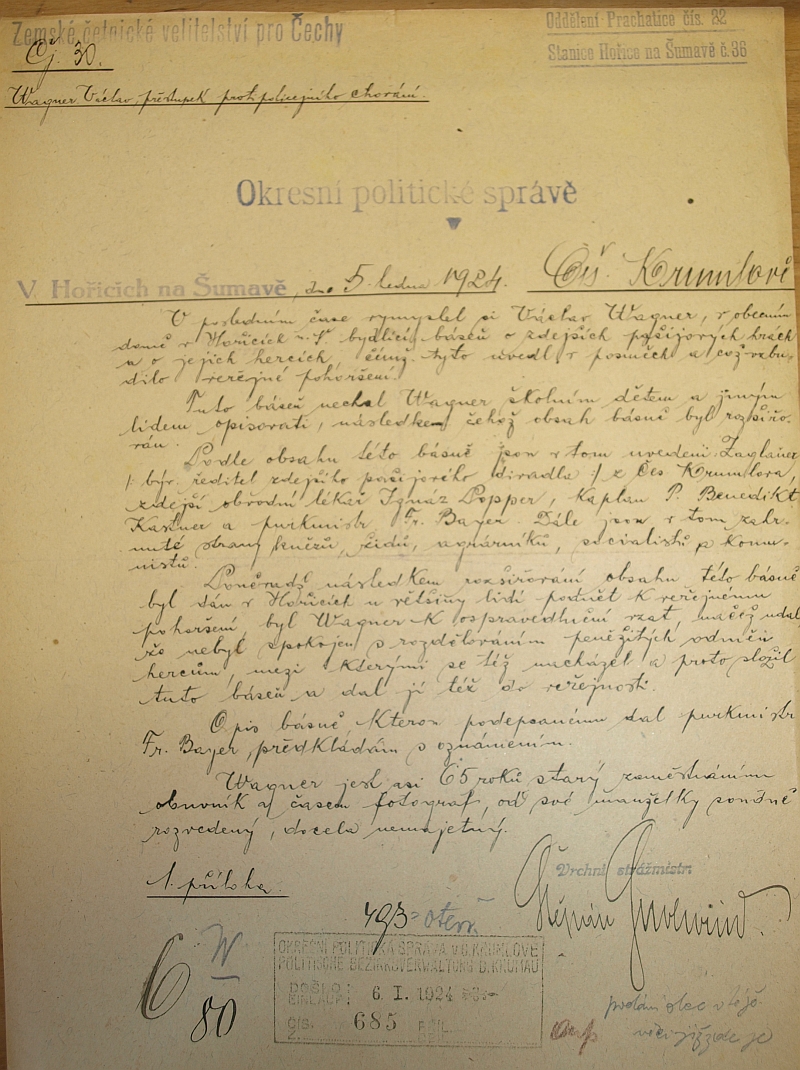 Zemské četnické velitelství pro Čechy
Oddělení Prachatice čís. 32
Stanice Hořice na Šumavě č. 36
Čj. 30.
Wagner Václav, přestupek proti policejního chování.
Okresní politické správě
V Hořicích na Šumavě, dne 5. ledna 1924. Čes. Krumlově
V posledním čase vymyslel si Václav Wagner, v obecním
domě v Hořicích n. Š. bydlící báseň o zdejších pašijových hrách
a o jejich hercích, čímž tyto uvedl v posměch a což vzbu-
dilo veřejné pohoršení.
Tuto báseň nechal Wagner školním dětem a jiným
lidem opisovati, následkem čehož obsah básně byl rozšiřo-
ván.
Podle obsahu této básně jsou v tom uvedeni Zaglauer
/: býv. ředitel zdejšího pašijového divadla :/ z Čes Krumlova,
zdejší obvodní lékař Ignaz Popper, kaplan P. Benedikt
Kastner a purkmistr Fr. Bayer. Dále jsou v tom zahr-
nuté strany kněžů, židů, agrárníků, socialistů a komu-
nistů.
Poněvadž následkem rozšiřování obsahu této básně
byl dán v Hořicích u většiny lidí podnět k veřejnému
pohoršení, byl Wagner k ospravedlnění vzat, načež udal
že nebyl spokojen s rozdělováním peněžitých odměn
hercům, mezi kterými se též nacházel a proto složil
tuto báseň a dal jí též do veřejnosti.
Opis básně kterou podepsanému dal purkmistr
Fr. Bayer, předkládám s oznámením.
Wagner jest asi 65 roků starý zaměstnáním
obuvník a časem fotograf, od své manželky soudně
rozvedený, docela nemajetný.
1 příloha.
Vrchní strážmistr
Štěpán
493
OKRESNÍ POLITICKÁ SPRÁVA V Č. KRUMLOVĚ
POLITISCHE BEZIRKSVERWALTUNG B. KRUMAU
DOŠLO:
EINLAUF:
6. I. 1924
ČÍS.
Z.
685
PŘÍL.
BEIL.
6 W
80
podání obce v téže
věci již zde je